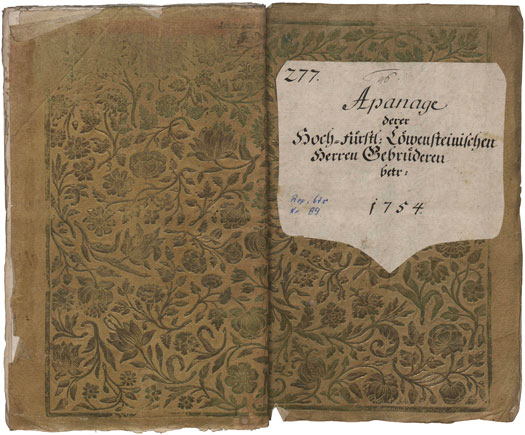 277.
Apanage
derer
Hoch-Fürstl: Löwensteinischen
Herren Gebrüderen
betr:
1754.
Rep.
Nr. 89